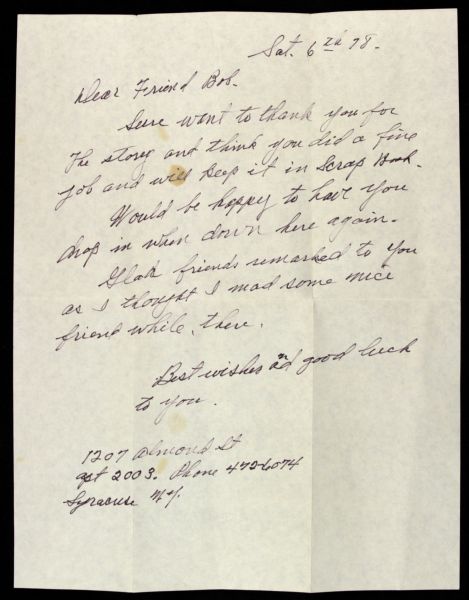 Sat. 6 th 78.
Dear Friend Bob.
Sure want to thank you for
The story and think you did a fine
job and will keep it in Scrap Book.
Would be happy to have you
drop in when down here again.
Glad friends remarked to you
as I thought I mad some nice
friend while, there.
Best wishes and good luck
to you.
1207 Almond St
apt 2003. Phone 472-6074
Syracuse N.Y.